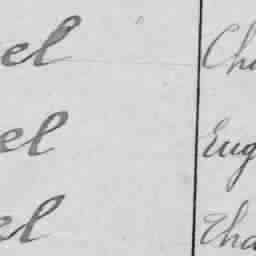 el Ch
el Eug
el Cha